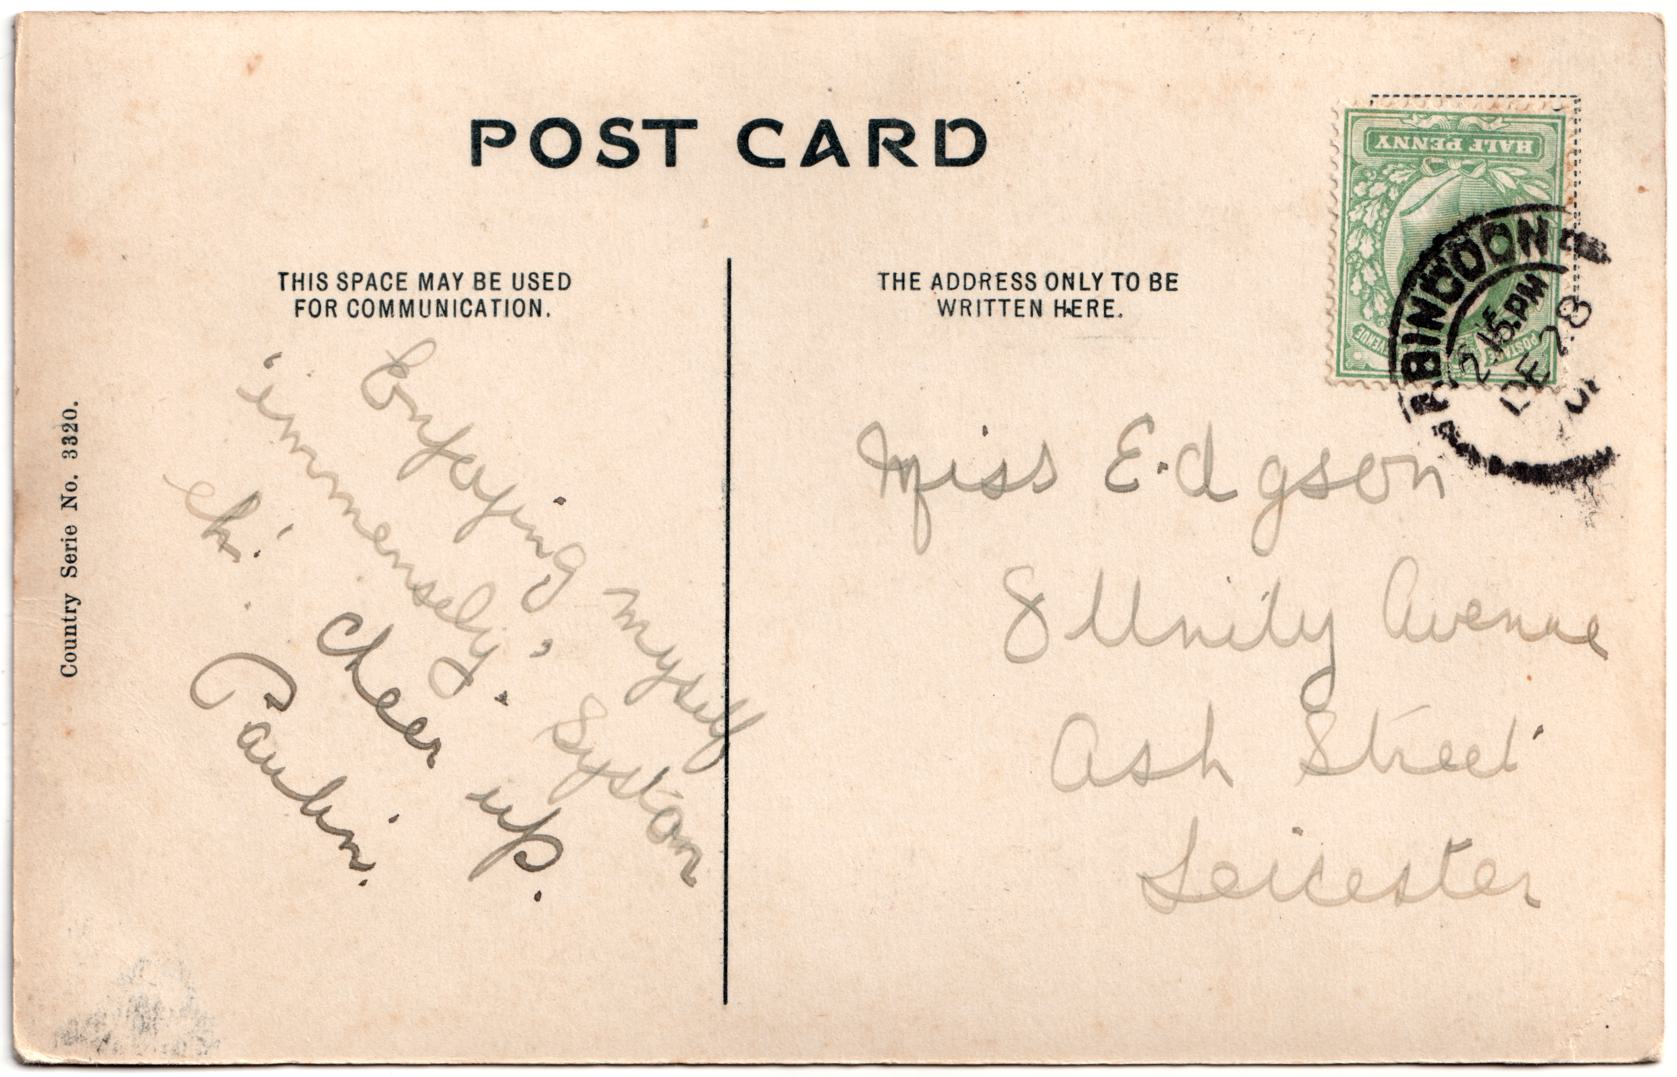 POST CARD
THIS SPACE MAY BE USED
FOR COMMUNICATION.
THE ADDRESS ONLY TO BE
WRITTEN HERE.
HALF PENNY
POSTAGE
ABINGDON
2.15.PM
DE 28
Country Serie No. 3320.
Enjoying myself
immensely, Syston
eh!
Cheer up.
Miss E.dgson
8 Unity Avenue
Ash Street
Leicester